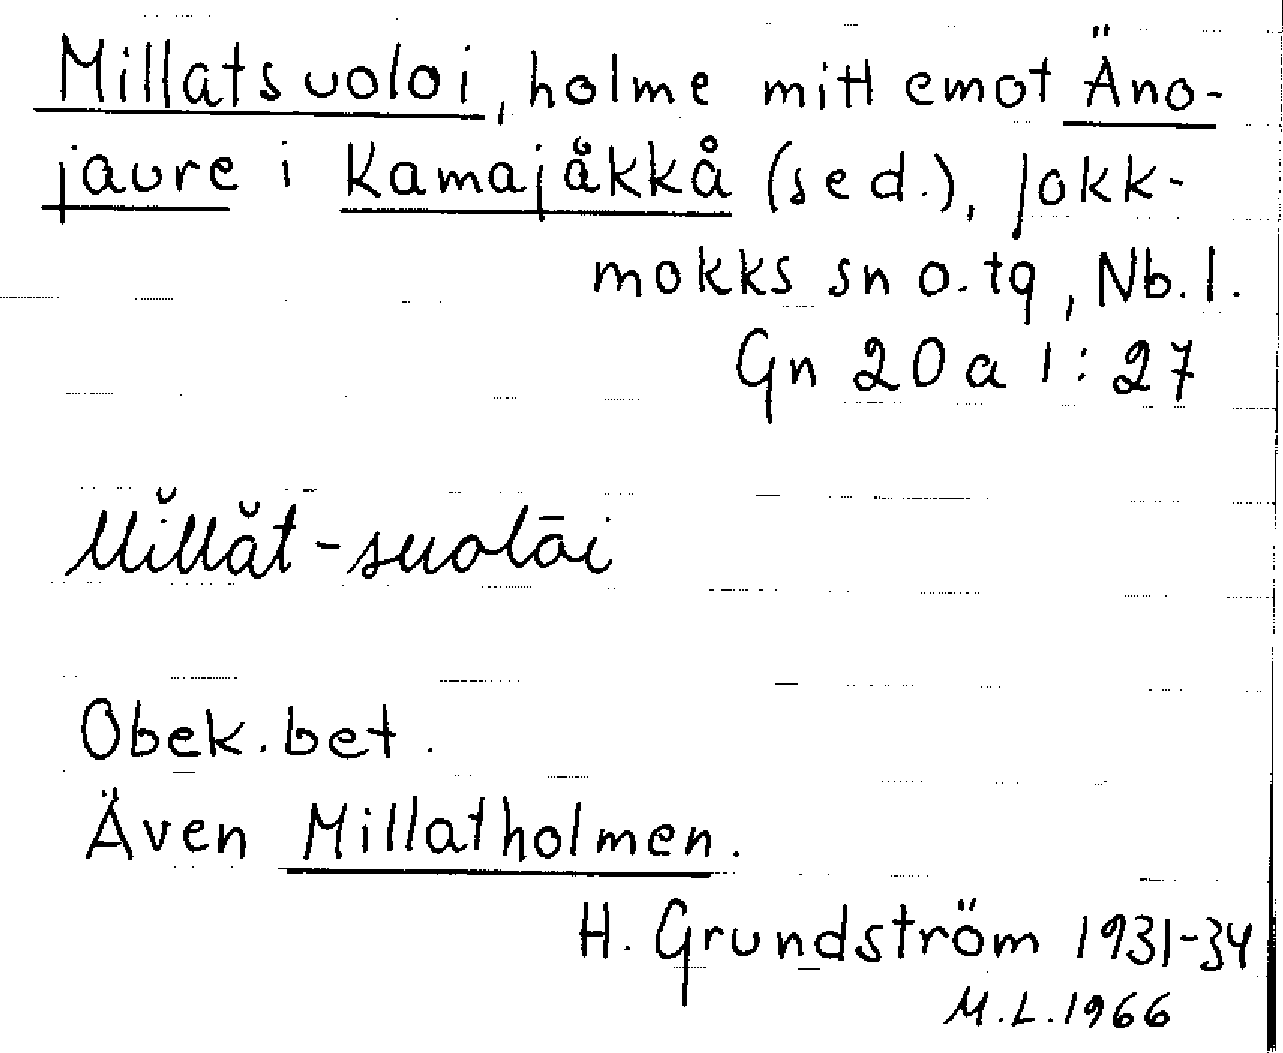 Millatsuoloi, holme mitt emot Äno-
jaure i Kamajåkkå (sed.), Jokk-
mokks sn o. tg, Nb. l.
Gn 20 a 1:27
Mĭllăt-suolāi
Obek. bet.
Även Millatholmen.
H. Grundström 1931-34
M.L. 1966